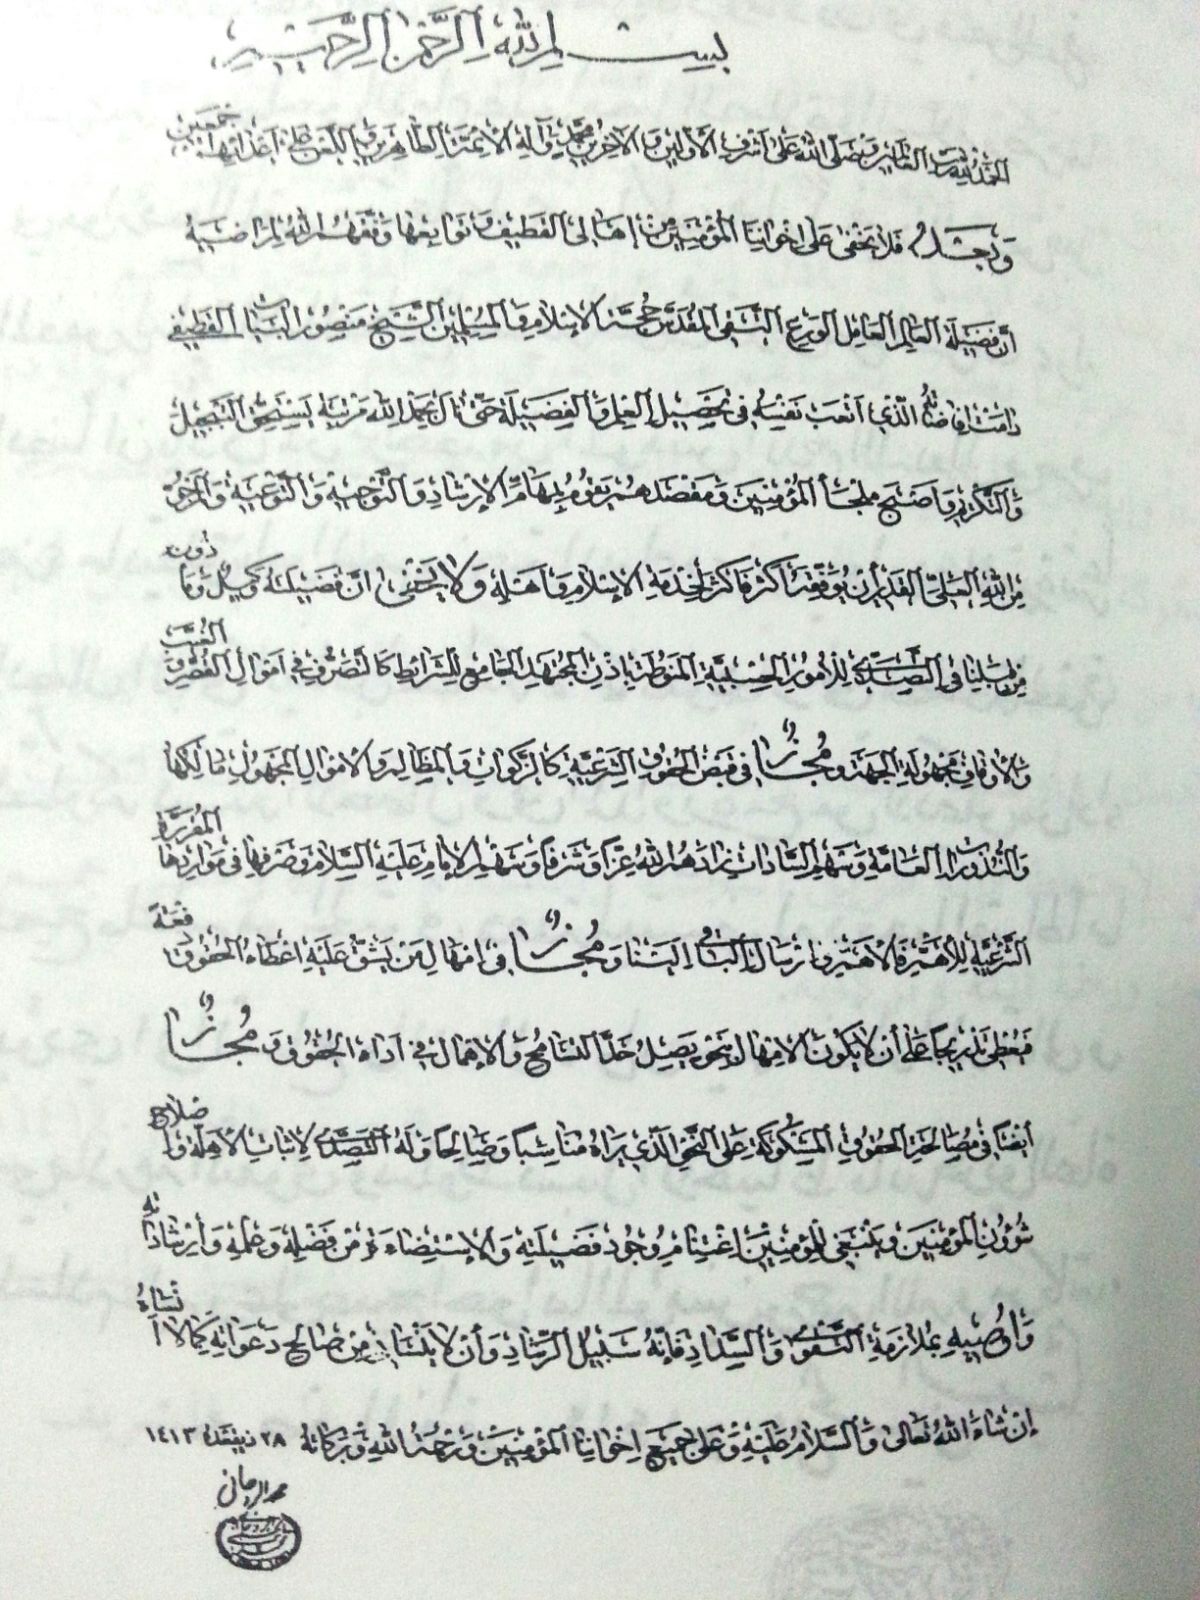 بسم الله الرحمن الرحيم
الحمد لله رب العالمين وصلى الله على أشرف الأولين والآخرين محمد وآله الأئمة الطاهرين واللعن على أعدائهم أجمعين
وبعد فلا يخفى على إخواننا المؤمنين من أهالي القطيف وتوابعها وفقهم الله لمراضيه
أن فضيلة العالم العامل الورع التقي المقدس حجة الإسلام والمسلمين الشيخ منصور البيات القطيفي
دامت إفاضاته الذي أتعب نفسه في تحصيل العلم والفضيلة حتى نال بحمد الله مرتبة يستحق التبجيل
والتكريم وأصبح ملجأ المؤمنين ومقصدهم يقوم بمهام الإرشاد والتوجيه والتوعية والمرجو
من الله العلي القدير أن يوفقه أكثر فأكثر لخدمة الإسلام وأهله ولا يخفى أن فضيلته وكيل ومأذون
من قبلنا في التصدي للأمور الحسبية المنوطة بإذن المجتهد الجامع للشرائط كالتصرف في أموال القصر والغيب
والأوقاف مجهولة الجهة ومجاز في قبض الحقوق الشرعية كالزكوات والمظالم والأموال المجهول مالكها
والنذورات العامة وسهم السادات زادهم الله عزا وشرفا وسهم الإمام عليه السلام وصرفها في مواردها المقررة
الشرعية للأهم فالأهم وإرسال الباقي إلينا ومجاز في إمهال من يشق عليه إعطاء الحقوق دفعة
فيعطي تدريجا على أن لا يكون الإمهال بنحو يصل حد التسامح والإهمال في أداء الحقوق ومجاز
أيضا في مصالحة الحقوق المشكوكة على النحو الذي يراه مناسبا وصالحا وله التصدي لإثبات الأهلة وإصلاح
شؤون المؤمنين وينبغي للمؤمنين اغتنام وجود فضيلته والاستضاءة من فضله وعلمه وإرشاداته
وأوصيه بملازمة التقوى والسداد فإنه سبيل الرشاد وأن لا ينسانا من صالح دعواته كما لا أنساه
إن شاء الله تعالى والسلام عليه وعلى جميع إخواننا المؤمنين ورحمة الله وبركاته ٢٨ ١٤١٣